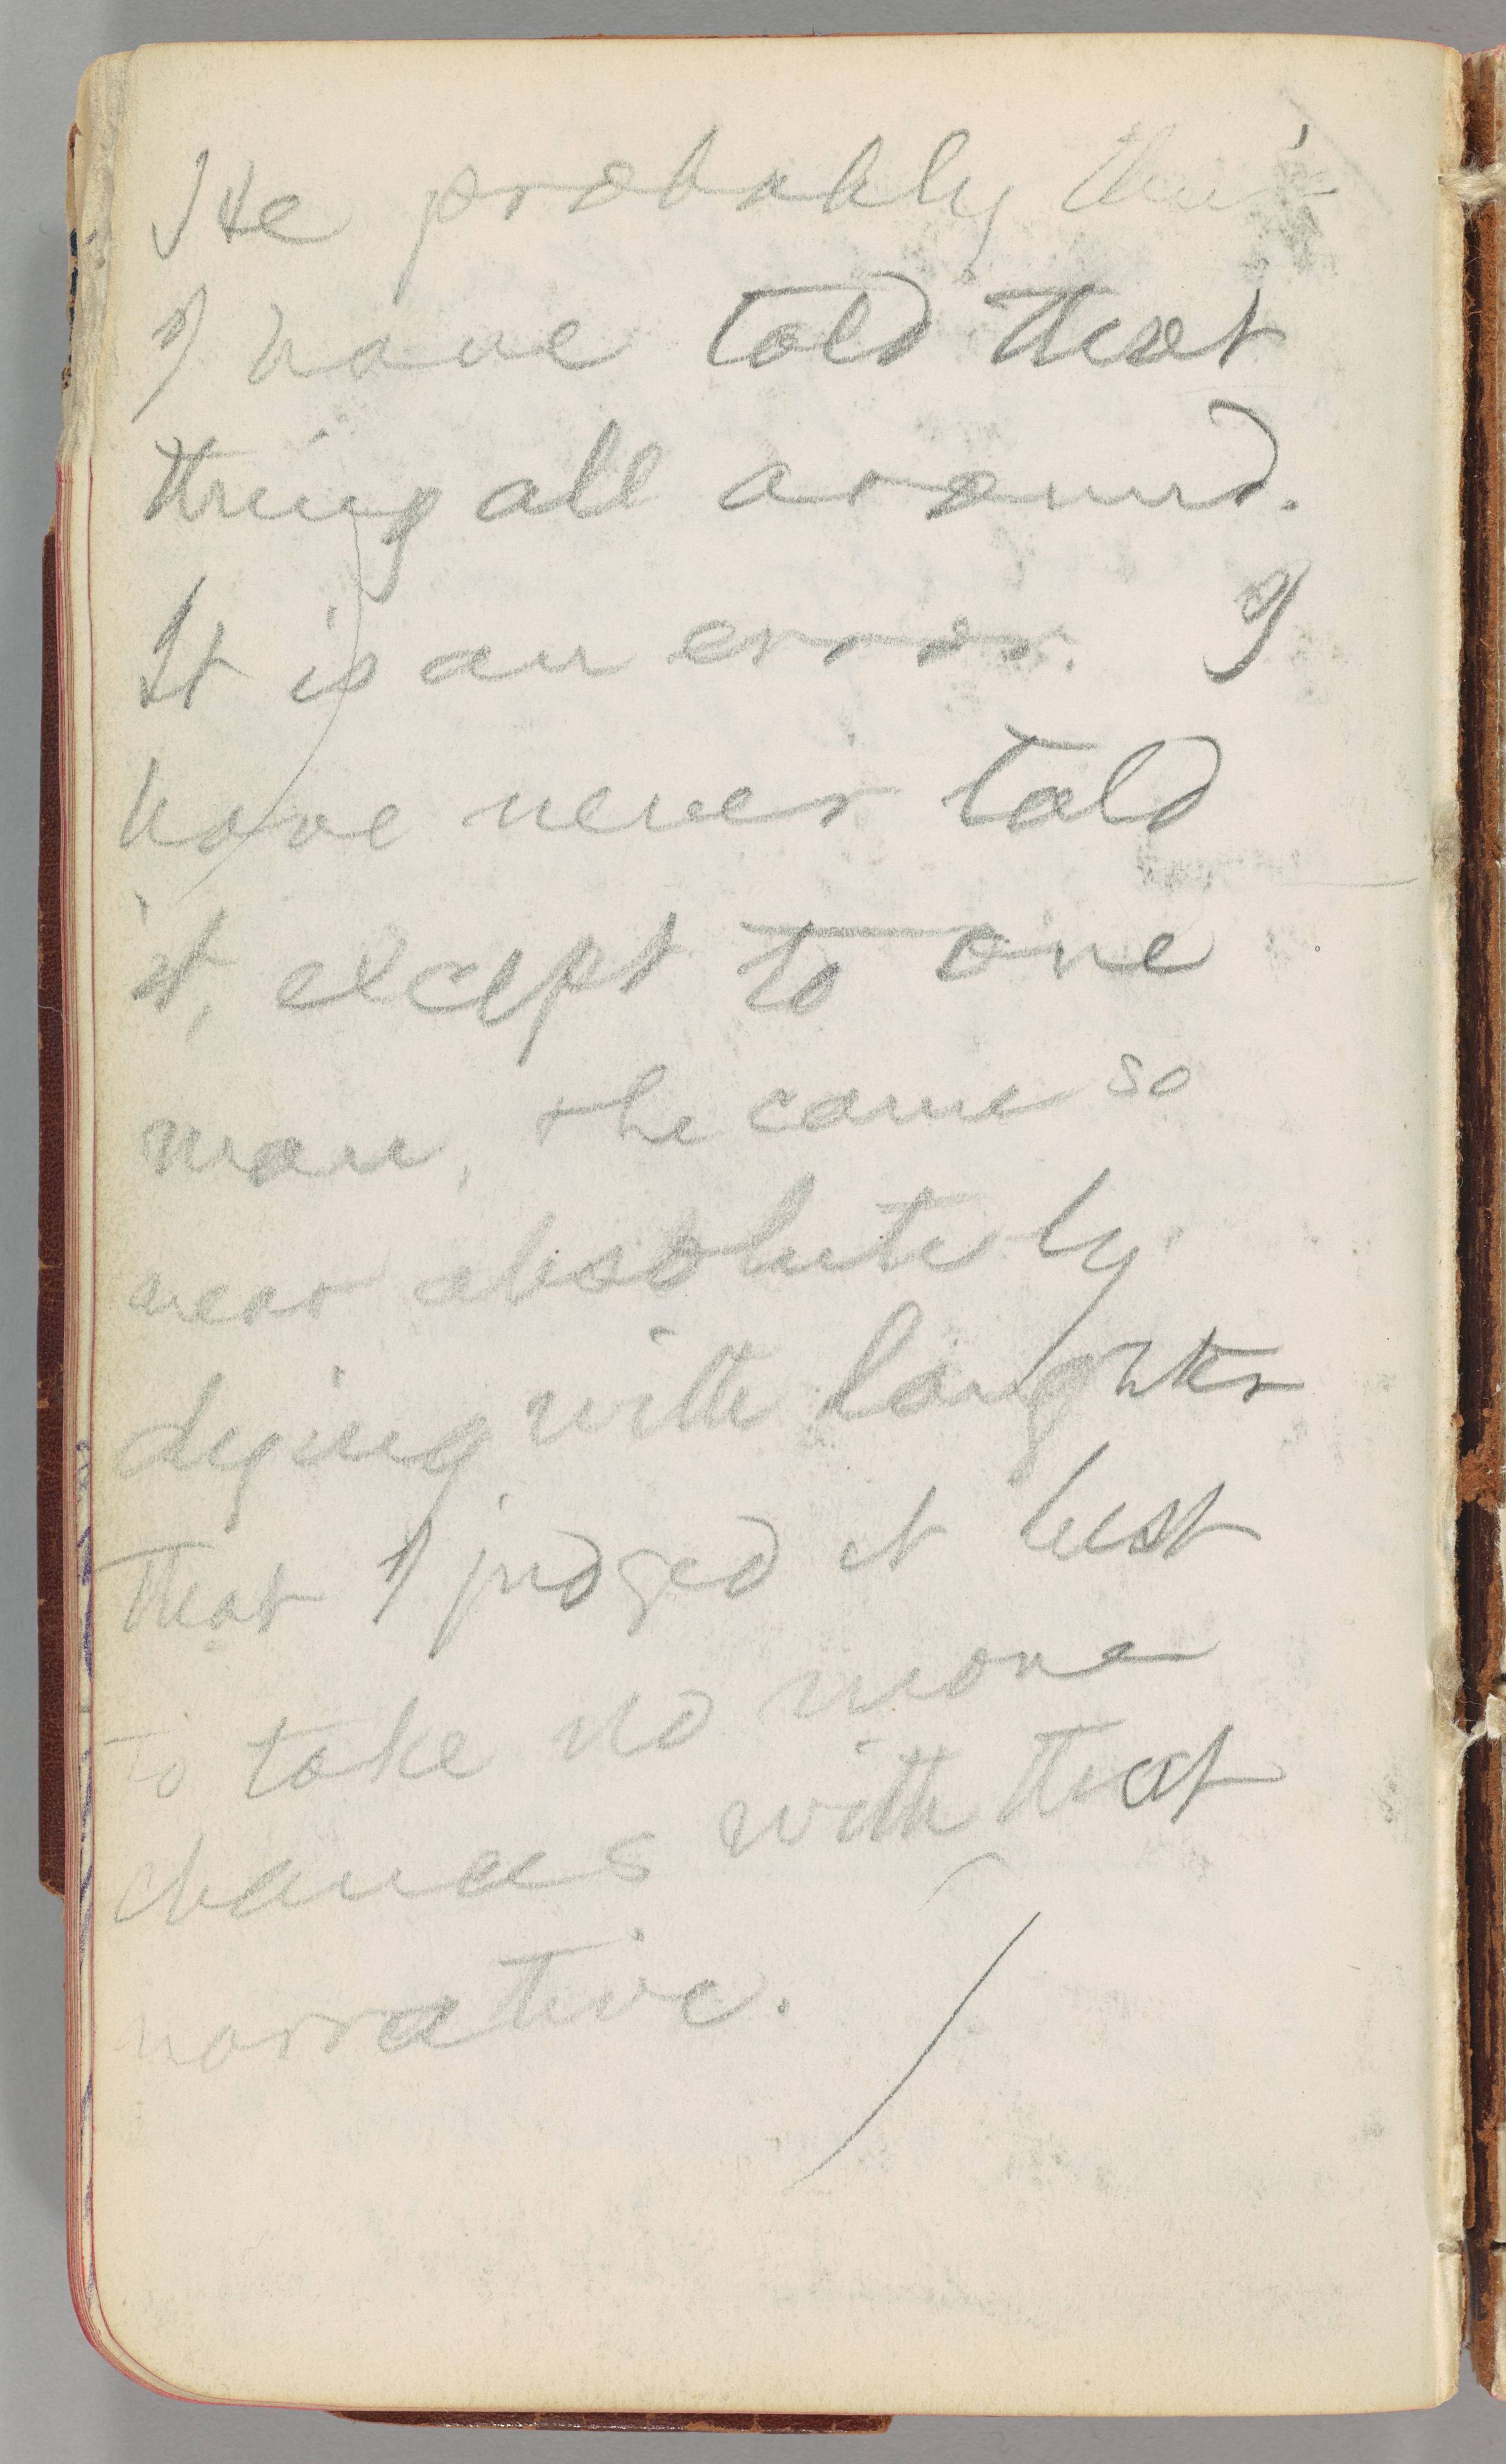 He probably thinks
I have told that
thing all around.
It is an error. I
have never told
it, except to one
man, & he came so
near absolutely
dying with laughter
that I judged it best
to take no more
chances with that
narrative.